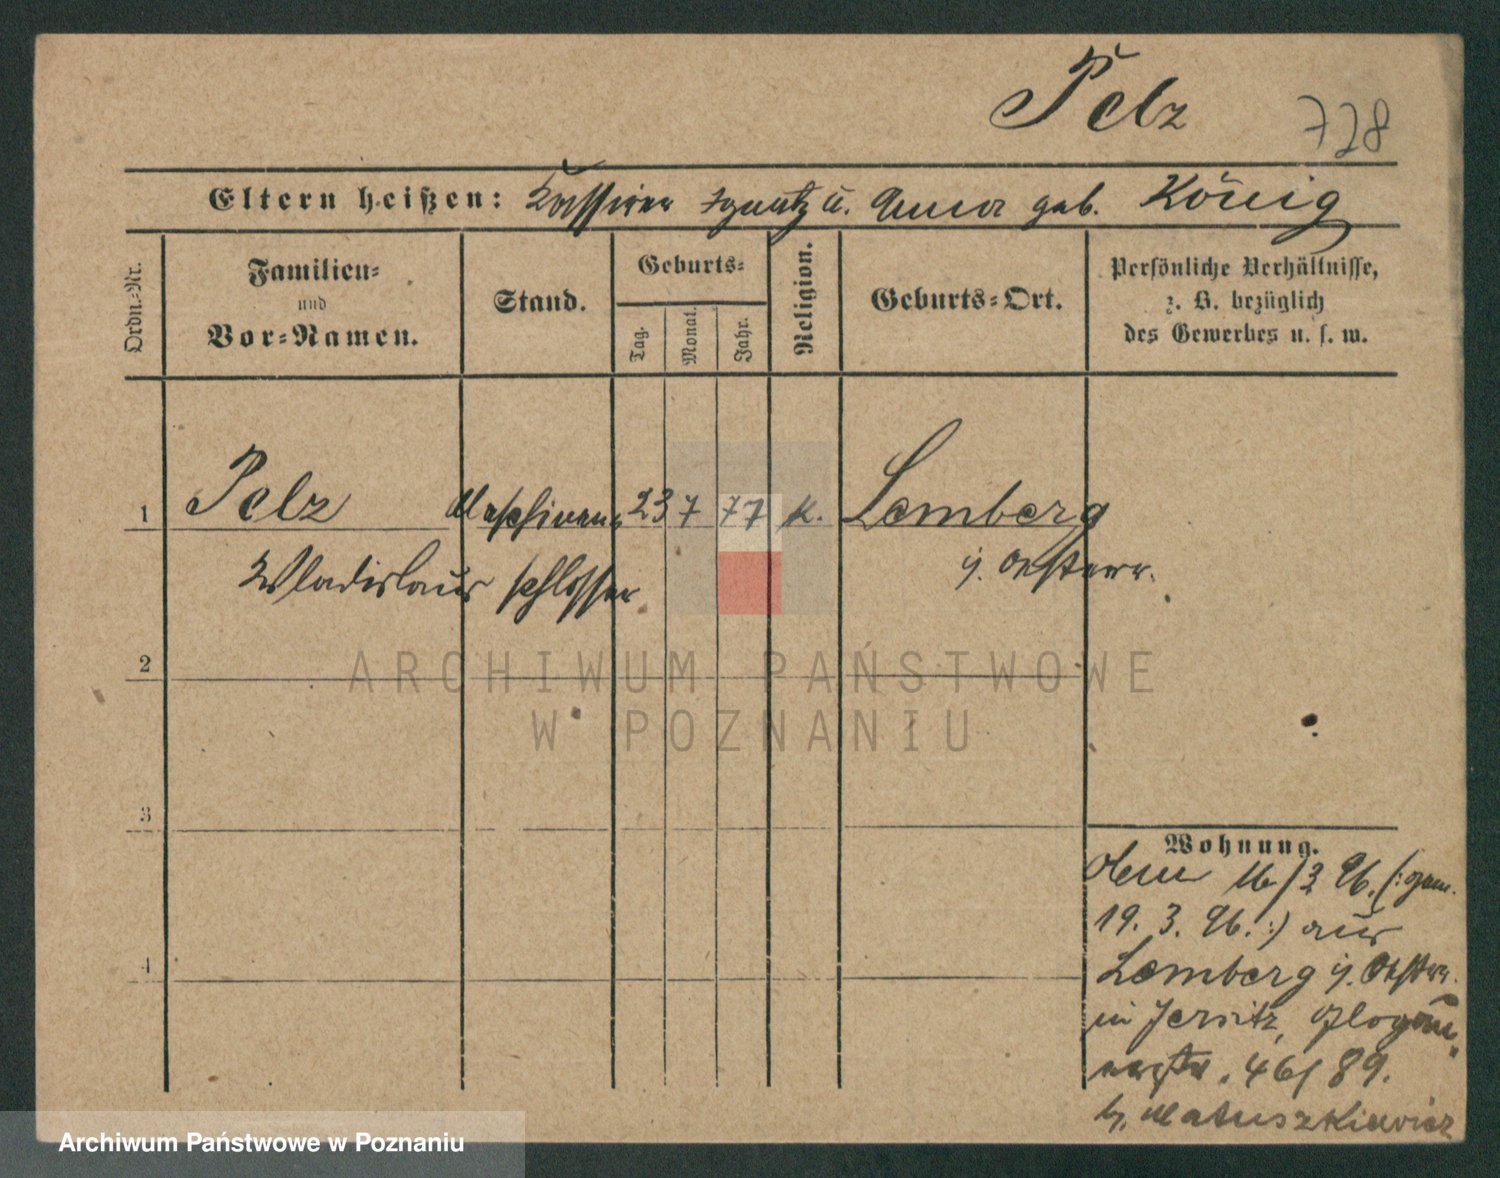 Pelz 728
Eltern heißen: Kassirer Ignatz u. Anna geb. König
Ordn.-Nr.
Familien-
und
Vor-Namen.
Stand.
Geburts-
Tag.
Monat.
Jahr.
Religion.
Geburts-Ort.
Persönliche Verhältnisse,
z. B. bezüglich
des Gewerbes u. s. w.
1 Pelz Maschinen- 23 7 77 k. Lemberg
Wladislaus schlosser i. Oesterr.
2
ARCHIWUM PAŃSTWOWE
W POZNANIU
3
4
Wohnung.
16/3 96. (: gem.
19. 3. 96. :) aus
Lemberg i. Oesterr.
in Jersitz, Glogau-
erstr. 46/89.
b. Matuszkiewicz
Archiwum Państwowe w Poznaniu